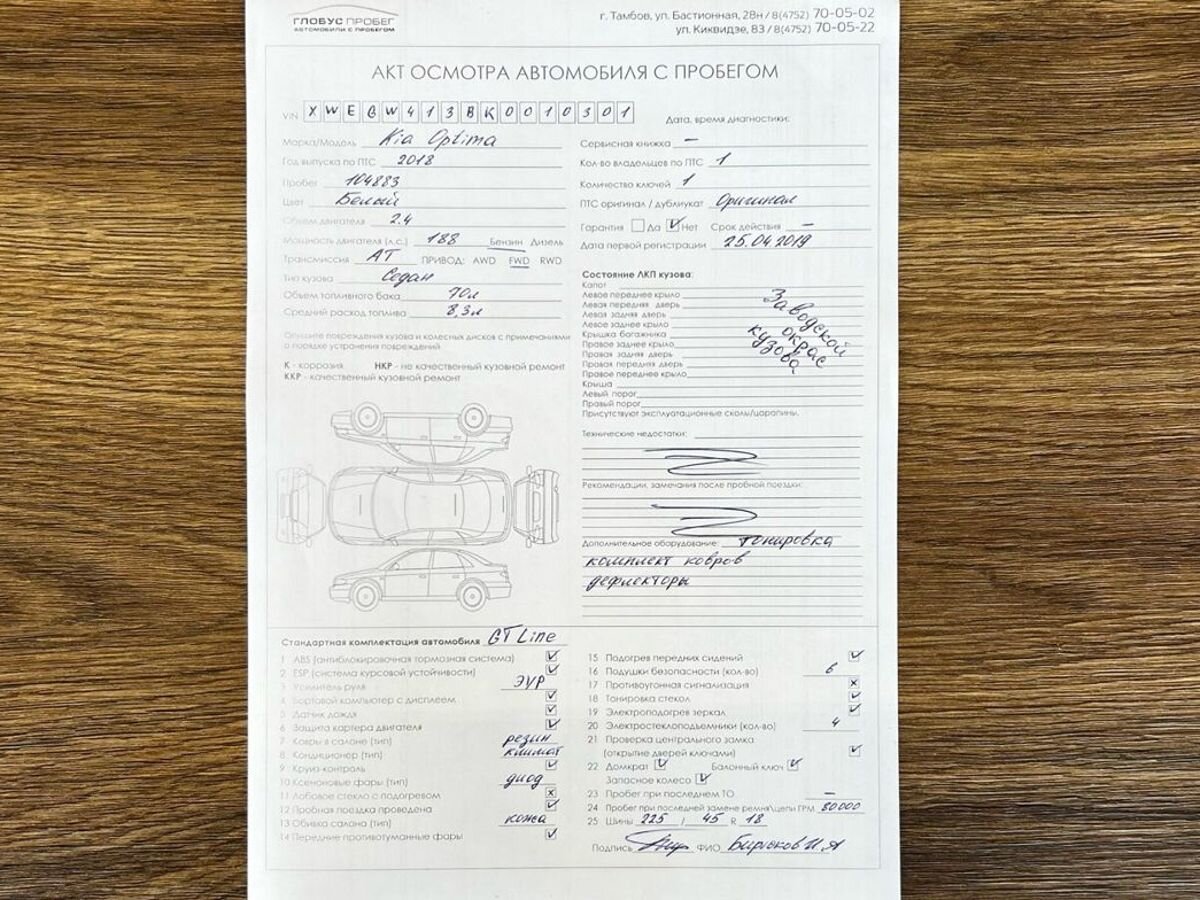 ГЛОБУС ПРОБЕГ
АВТОМОБИЛИ С ПРОБЕГОМ
г. Тамбов, ул. Бастионная, 28н / 8(4752) 70-05-02
ул. Киквидзе, 83 / 8(4752) 70-05-22
АКТ ОСМОТРА АВТОМОБИЛЯ С ПРОБЕГОМ
VIN XWEGW413BK0010301
Дата, время диагностики:
Марка/Модель Kia Optima
Год выпуска по ПТС 2018
Пробег 104883
Цвет Белый
Объем двигателя 2.4
Мощность двигателя (л.с.) 188 Бензин Дизель
Трансмиссия АТ ПРИВОД: AWD FWD RWD
Тип кузова Седан
Объем топливного бака 70л
Средний расход топлива 8,3л
Сервисная книжка –
Кол-во владельцев по ПТС 1
Количество ключей 1
ПТС оригинал / дубликат Оригинал
Гарантия Да Нет Срок действия –
Дата первой регистрации 25.04.2019
Опишите повреждения кузова и колесных дисков с примечаниями
о порядке устранения повреждений
К - коррозия НКР - не качественный кузовной ремонт
ККР - качественный кузовной ремонт
Состояние ЛКП кузова:
Капот
Левое переднее крыло
Левая передняя дверь
Левая задняя дверь
Левое заднее крыло
Крышка багажника
Правое заднее крыло
Правая задняя дверь
Правая передняя дверь
Правое переднее крыло
Крыша
Левый порог
Правый порог
Заводской
окрас
кузова
Присутствуют эксплуатационные сколы/царапины.
Технические недостатки:
Рекомендации, замечания после пробной поездки:
Дополнительное оборудование: тонировка
комплект ковров
дефлекторы
Стандартная комплектация автомобиля GT Line
1 ABS (антиблокировочная тормозная система)
2 ESP (система курсовой устойчивости)
3 Усилитель руля ЭУР
4 Бортовой компьютер с дисплеем
5 Датчик дождя
6 Защита картера двигателя
7 Ковры в салоне (тип) резин
8 Кондиционер (тип) климат
9 Круиз-контроль
10 Ксеноновые фары (тип) диод
11 Лобовое стекло с подогревом
12 Пробная поездка проведена
13 Обивка салона (тип) кожа
14 Передние противотуманные фары
15 Подогрев передних сидений
16 Подушки безопасности (кол-во) 6
17 Противоугонная сигнализация
18 Тонировка стекол
19 Электроподогрев зеркал
20 Электростеклоподъемники (кол-во) 4
21 Проверка центрального замка
(открытие дверей ключами)
22 Домкрат Балонный ключ
Запасное колесо
23 Пробег при последнем ТО –
24 Пробег при последней замене ремня/цепи ГРМ 80000
25 Шины 225 / 45 R 18
Подпись ФИО Бирюков И.А